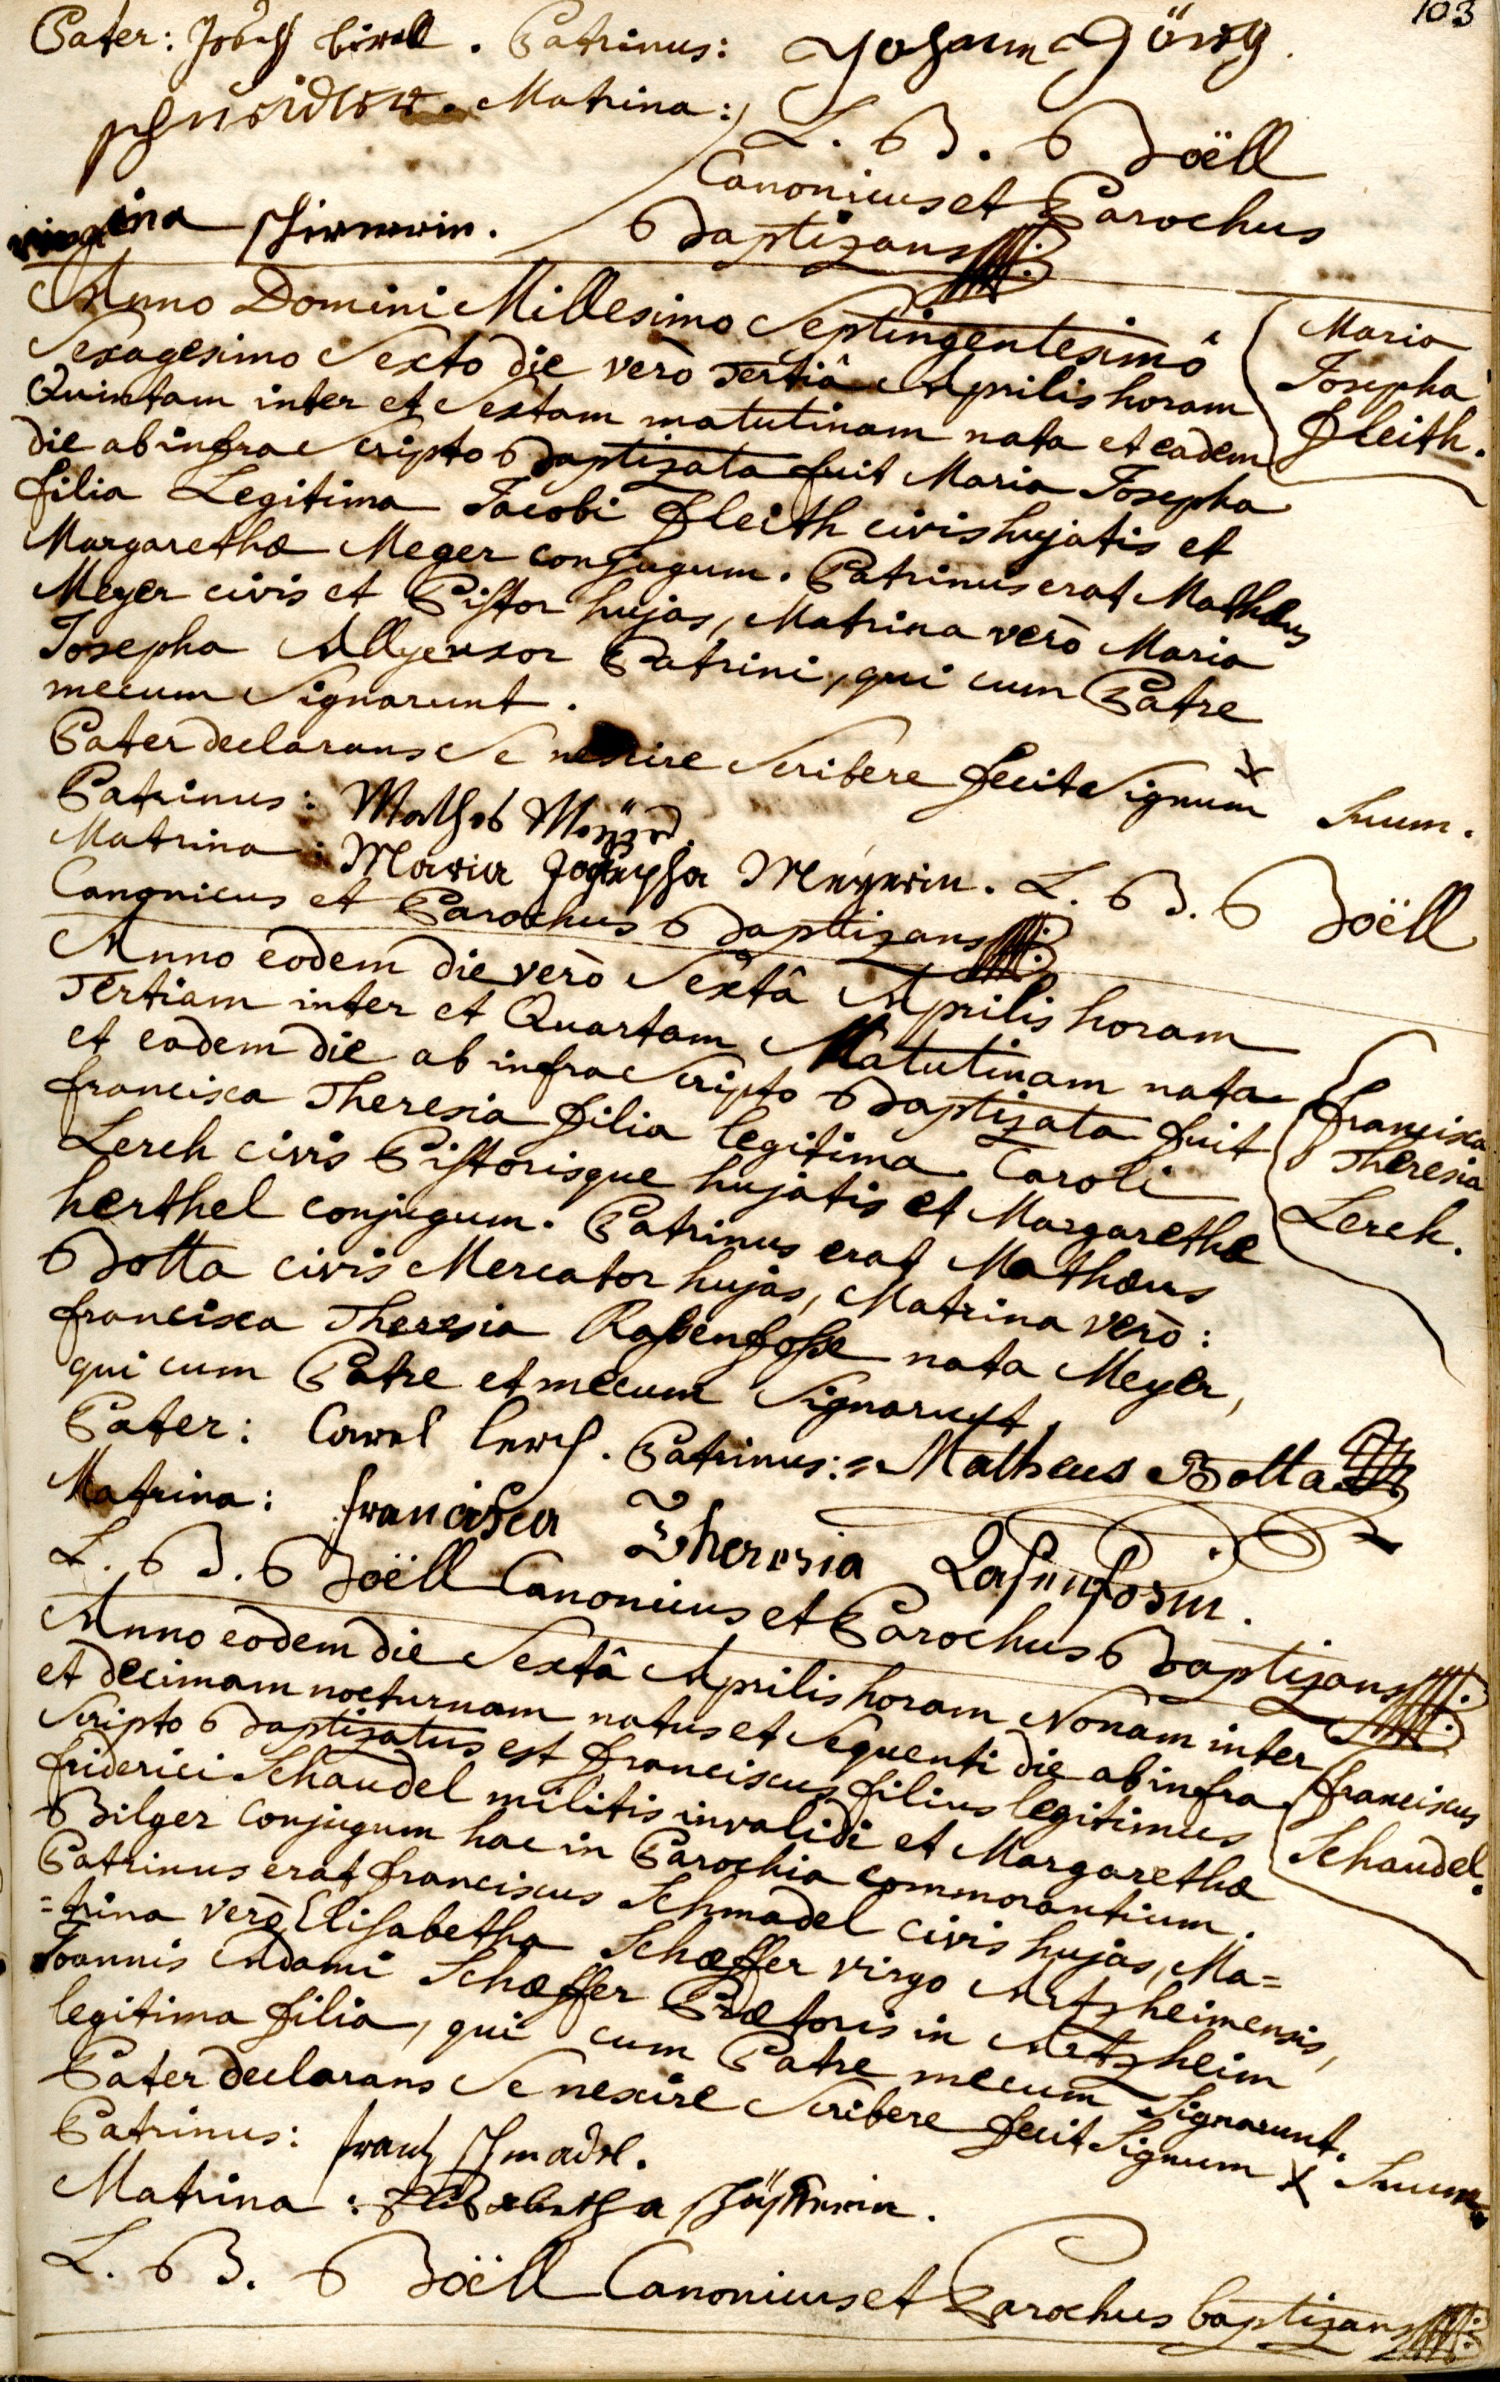 103
Pater: Joseph . Patrinus: Johann Görg
schneider. Matrina:
L. B. Boëll
Canonicus et Parochus
Baptizans
Anno Domini Millesimo Septingentesimô
Sexagesimo Sexto die verò Tertiâ Aprilis horam
Quintam inter et Sextam matutinam nata et eadem
die ab infra Scripto Baptizata fuit Maria Josepha
filia Legitima Jacobi fleith civis hujatis et
Margarethæ Meyer conjugum. Patrinus erat Mathæus
Meyer civis et Pistor hujas, Matrina verò Maria
Josepha Patrini, qui cum Patre
mecum Signarunt.
Maria
Josepha
fleith.
Pater declarans Se nescire Scribere fecit Signum x Suum.
Patrinus: Mathes Meÿer.
Matrina: Maria Josepha Meyerin. L. B. Boëll
Canonicus et Parochus Baptizans
Anno eodem die verò Sextâ Aprilis horam
Tertiam inter et Quartam Matutinam nata
et eadem die ab infra Scripto Baptizata fuit
francisca Theresia filia legitima Caroli
Lerch civis Pistorisque hujatis et Margarethæ
herthel conjugum. Patrinus erat Mathæus
Botta civis Mercator hujas, Matrina verò:
francisca Theresia nata Meyer,
qui cum Patre et mecum Signarunt,
francisca
Theresia
Lerch.
Pater: Carel lerch. Patrinus: Matheus Botta
Matrina: francisca Theresia
L. B. Boëll Canonicus et Parochus Baptizans
Anno eodem die Sextâ Aprilis horam Nonam inter
et decimam nocturnam natus et Sequenti die ab infra
Scripto Baptizatus est franciscus filius legitimus
friderici Schaudel militis invalidi et Margarethæ
Bilger conjugum hac in Parochia commorantium.
Patrinus erat franciscus Schmadel civis hujas, Ma=
=trina verò Elisabetha Schæffer virgo Artzheimensis,
Joannis Adami Schæffer Prætoris in Artzheim
legitima filia, qui cum Patre mecum Signarunt.
franciscus
Schaudel.
Pater declarans Se nescire Scribere fecit Signum x Suum.
Patrinus: frantz schmadel.
Matrina: Elisabetha schäfferin.
L. B. Boëll Canonicus et Parochus baptizans